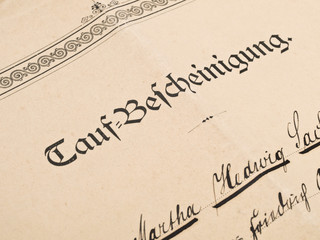 Tauf=Bescheinigung.
Martha Hedwig
Friedrich